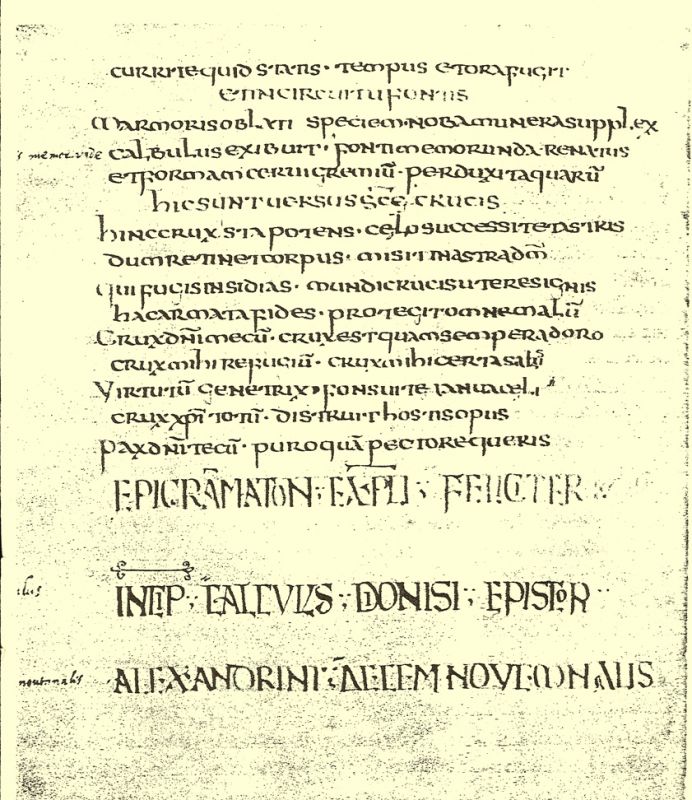 curritequid statis · tempus etorafugit
etincircuitu fontis
Marmorisoblati speciem·nobamunerasupplex
calbulusexiburt · fontimemorunda·renatus
etformamceruigremiū · perduxitaquarū
hicsuntuersus sc̄e crucis
hinccrux stapotens · celosuccessitetastris
dumretinetcorpus · misitinastradm̄
quifugisinsidias · mundicrucisuteresignis
hacarmatafides · protegitomnemalū
Cruxdn̄imecū · cruxestquamsemperadoro
cruxmihirefugiū · cruxmihicertasalus
Virtutū genetrix · fonsuite ianuaceli
cruxxp̄i totū · distruithostisopus
Paxdn̄itecū · puroquāpectorequeris
EPIGRĀMATON · EXPLI · FELICITER
INCIP · CALCVLVS · DIONISI · EPISTOR
ALEXANDRINI · DECEMNOVEMNALIS